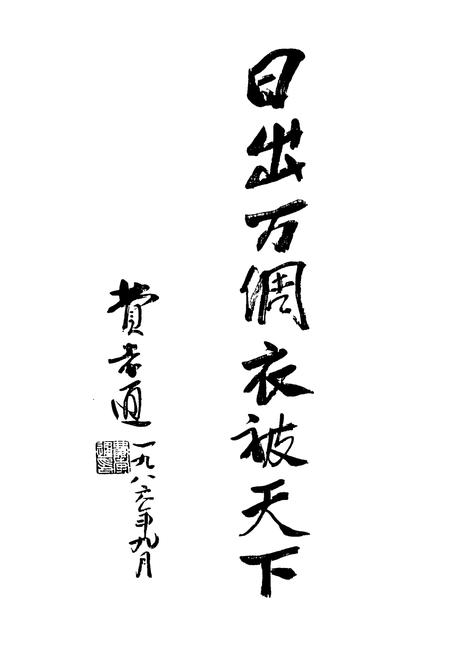 日出万绸衣被天下
费孝通
一九八六年九月